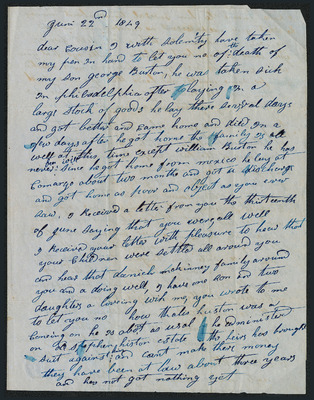 June 22nd 1849
dear Cousin I with Solemnity have taken
my pen in hand to let you no of the death of
my son george Buston, he was taken sick
in philedelphia after laying in a
large stock of goods he lay there several days
and got better and came home and died in a
few days after he got home the family is all
well at this time except william Buston he has
never since he got home from mexico he lay at
Camargo about two months and got a discharge
and got home as poor and object as you ever
saw, I received a letter from you the thirteenth
of June saying that you were all well
I received your letter with pleasure to hear that
your children were settle all around you
and hear that family around
you and a doing well, I have one son and two
daughters a living with me, you wrote to me
to let you no how thales huston was a
coming on he is about as usal he administer
on stephen huston estate the heirs has brought
suit against and cant make there money
they have been at law about three years
and has not got nothing yet